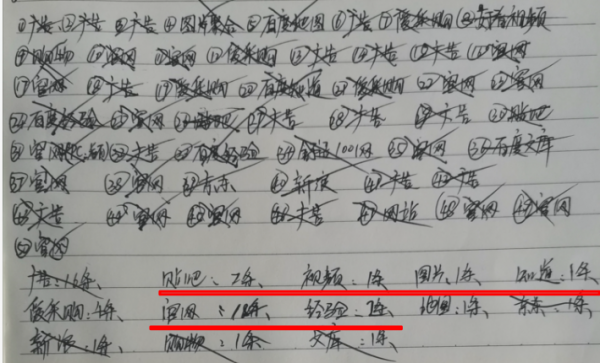 ①广告 ②广告 ③广告 ④图片聚合 ⑤百度地图 ⑥广告 ⑦爱采购 ⑧好看视频
⑨购物 ⑩官网 官网 ⑫爱采购 ⑬广告 ⑭广告 ⑮广告 ⑯官网
⑰官网 ⑱广告 ⑲爱采购 ⑳百度知道 ㉑爱采购 ㉒官网 ㉓官网
㉔百度经验 ㉕官网 ㉖贴吧 ㉗广告 ㉘广告 ㉙广告 ㉚贴吧
㉛官网 ㉜广告 ㉝百度经验 ㉞ 1001网 ㉟官网 ㊱百度文库
㊲官网 ㊳官网 ㊴京东 ㊵新浪 ㊶广告 ㊷广告
㊸广告 ㊹官网 ㊺官网 ㊻广告 ㊼网站 ㊽官网 ㊾官网
㊿官网
广告:16条、 贴吧:2条、 视频:1条 图片:1条、 知道:1条、
爱采购:4条、 官网: 经验:2条、 地图:1条、 京东:1条、
新浪:1条、 购物:1条、 文库:1条、